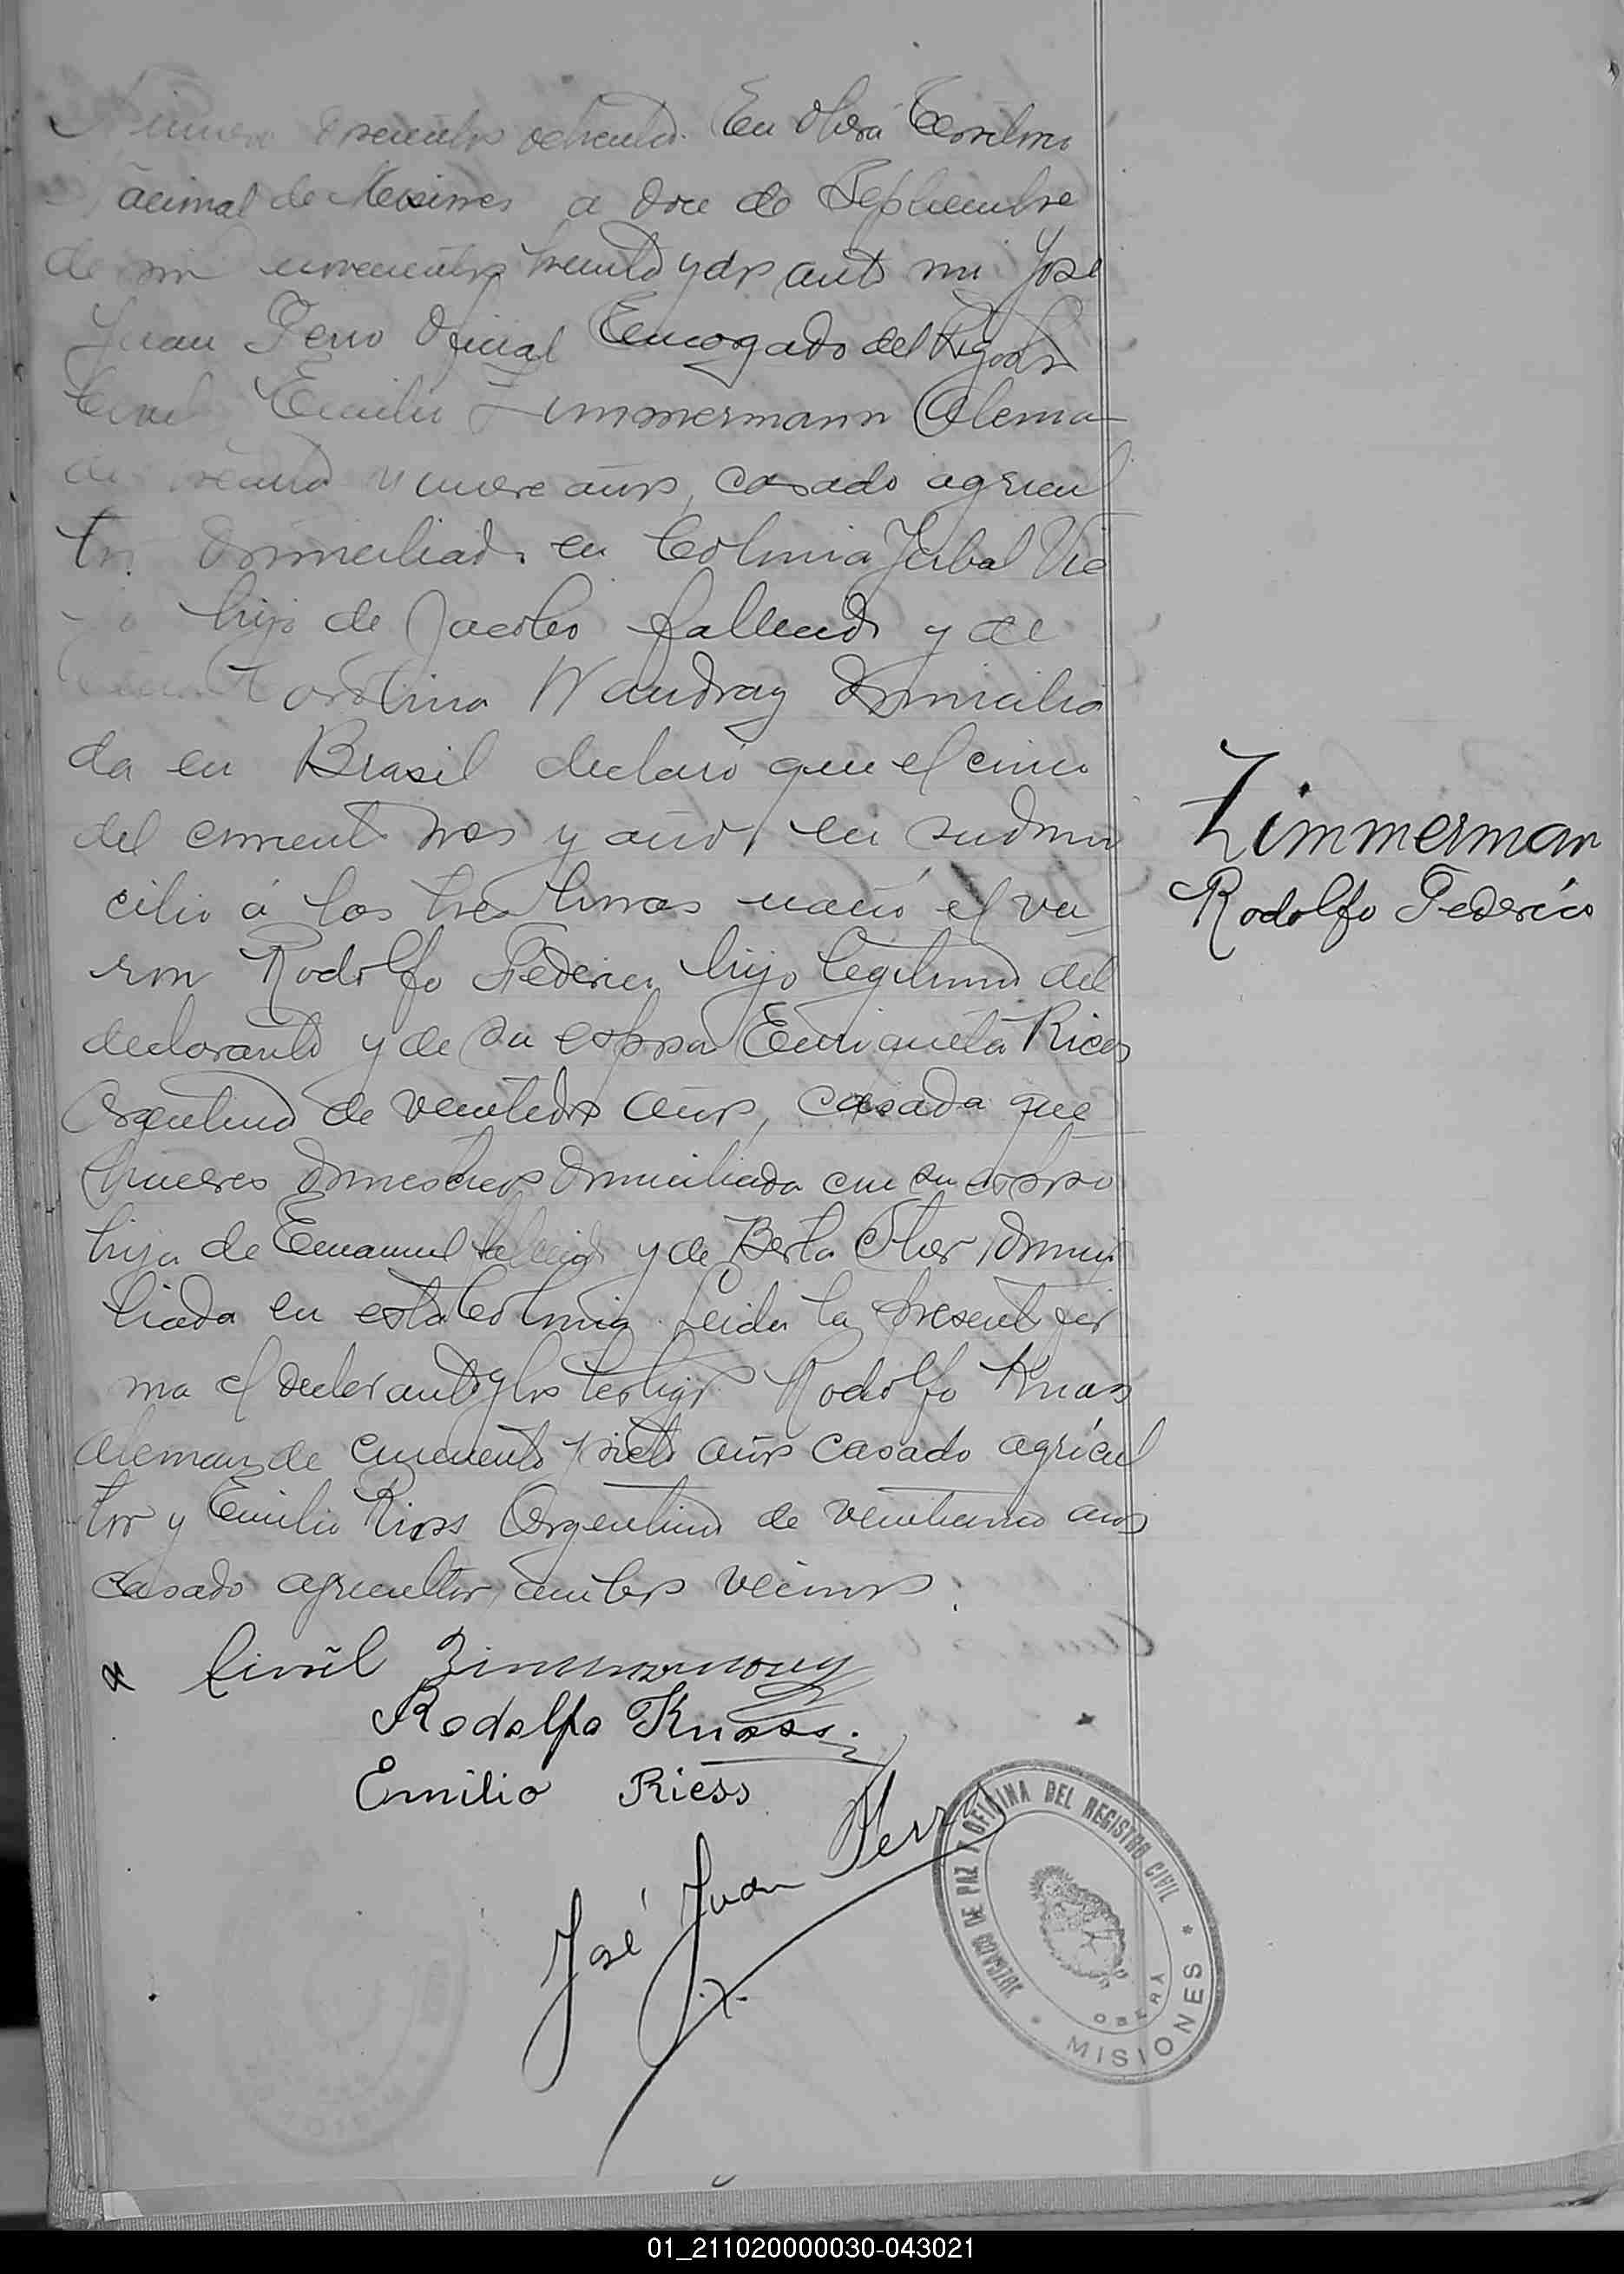 Numero trescientos ochenta. En Obera Territorio
nacional de Misiones a doce de Septiembre
de mil novecientos treinta y dos ante mi José
Juan Ferro Oficial Encargado del Registro
Civil Emilio Zimmermann Aleman
de treinta y nueve años, casado agricul
tor domiciliado en Colonia Yerbal Vie
jo hijo de Jacobo fallecido y de
Carolina Wandray domicilia
da en Brasil declaró que el cinco
del corriente mes y año, en su domi
cilio á las tres horas nació el va
ron Rodolfo Federico hijo legitimo del
declarante y de su esposa Enriqueta Riess
Argentina de veintidos años, casada que
haceres domesticos domiciliada con su esposo
hija de Emanuel fallecido y de Berta domici
liada en esta Colonia. Leida la presente fir
ma el declarante y los testigos Rodolfo Knass
Aleman de cincuenta y siete años casado agricul
tor y Emilio Riess Argentino de veintiuno años
casado agricultor, ambos vecinos.
Emil Zimmermann
Rodolfo Knass.
Emilio Riess
José Juan Ferro
Zimmerman
Rodolfo Federico
JUZGADO DE PAZ Y OFICINA DEL REGISTRO CIVIL
OBERA
* MISIONES *
01_211020000030-043021